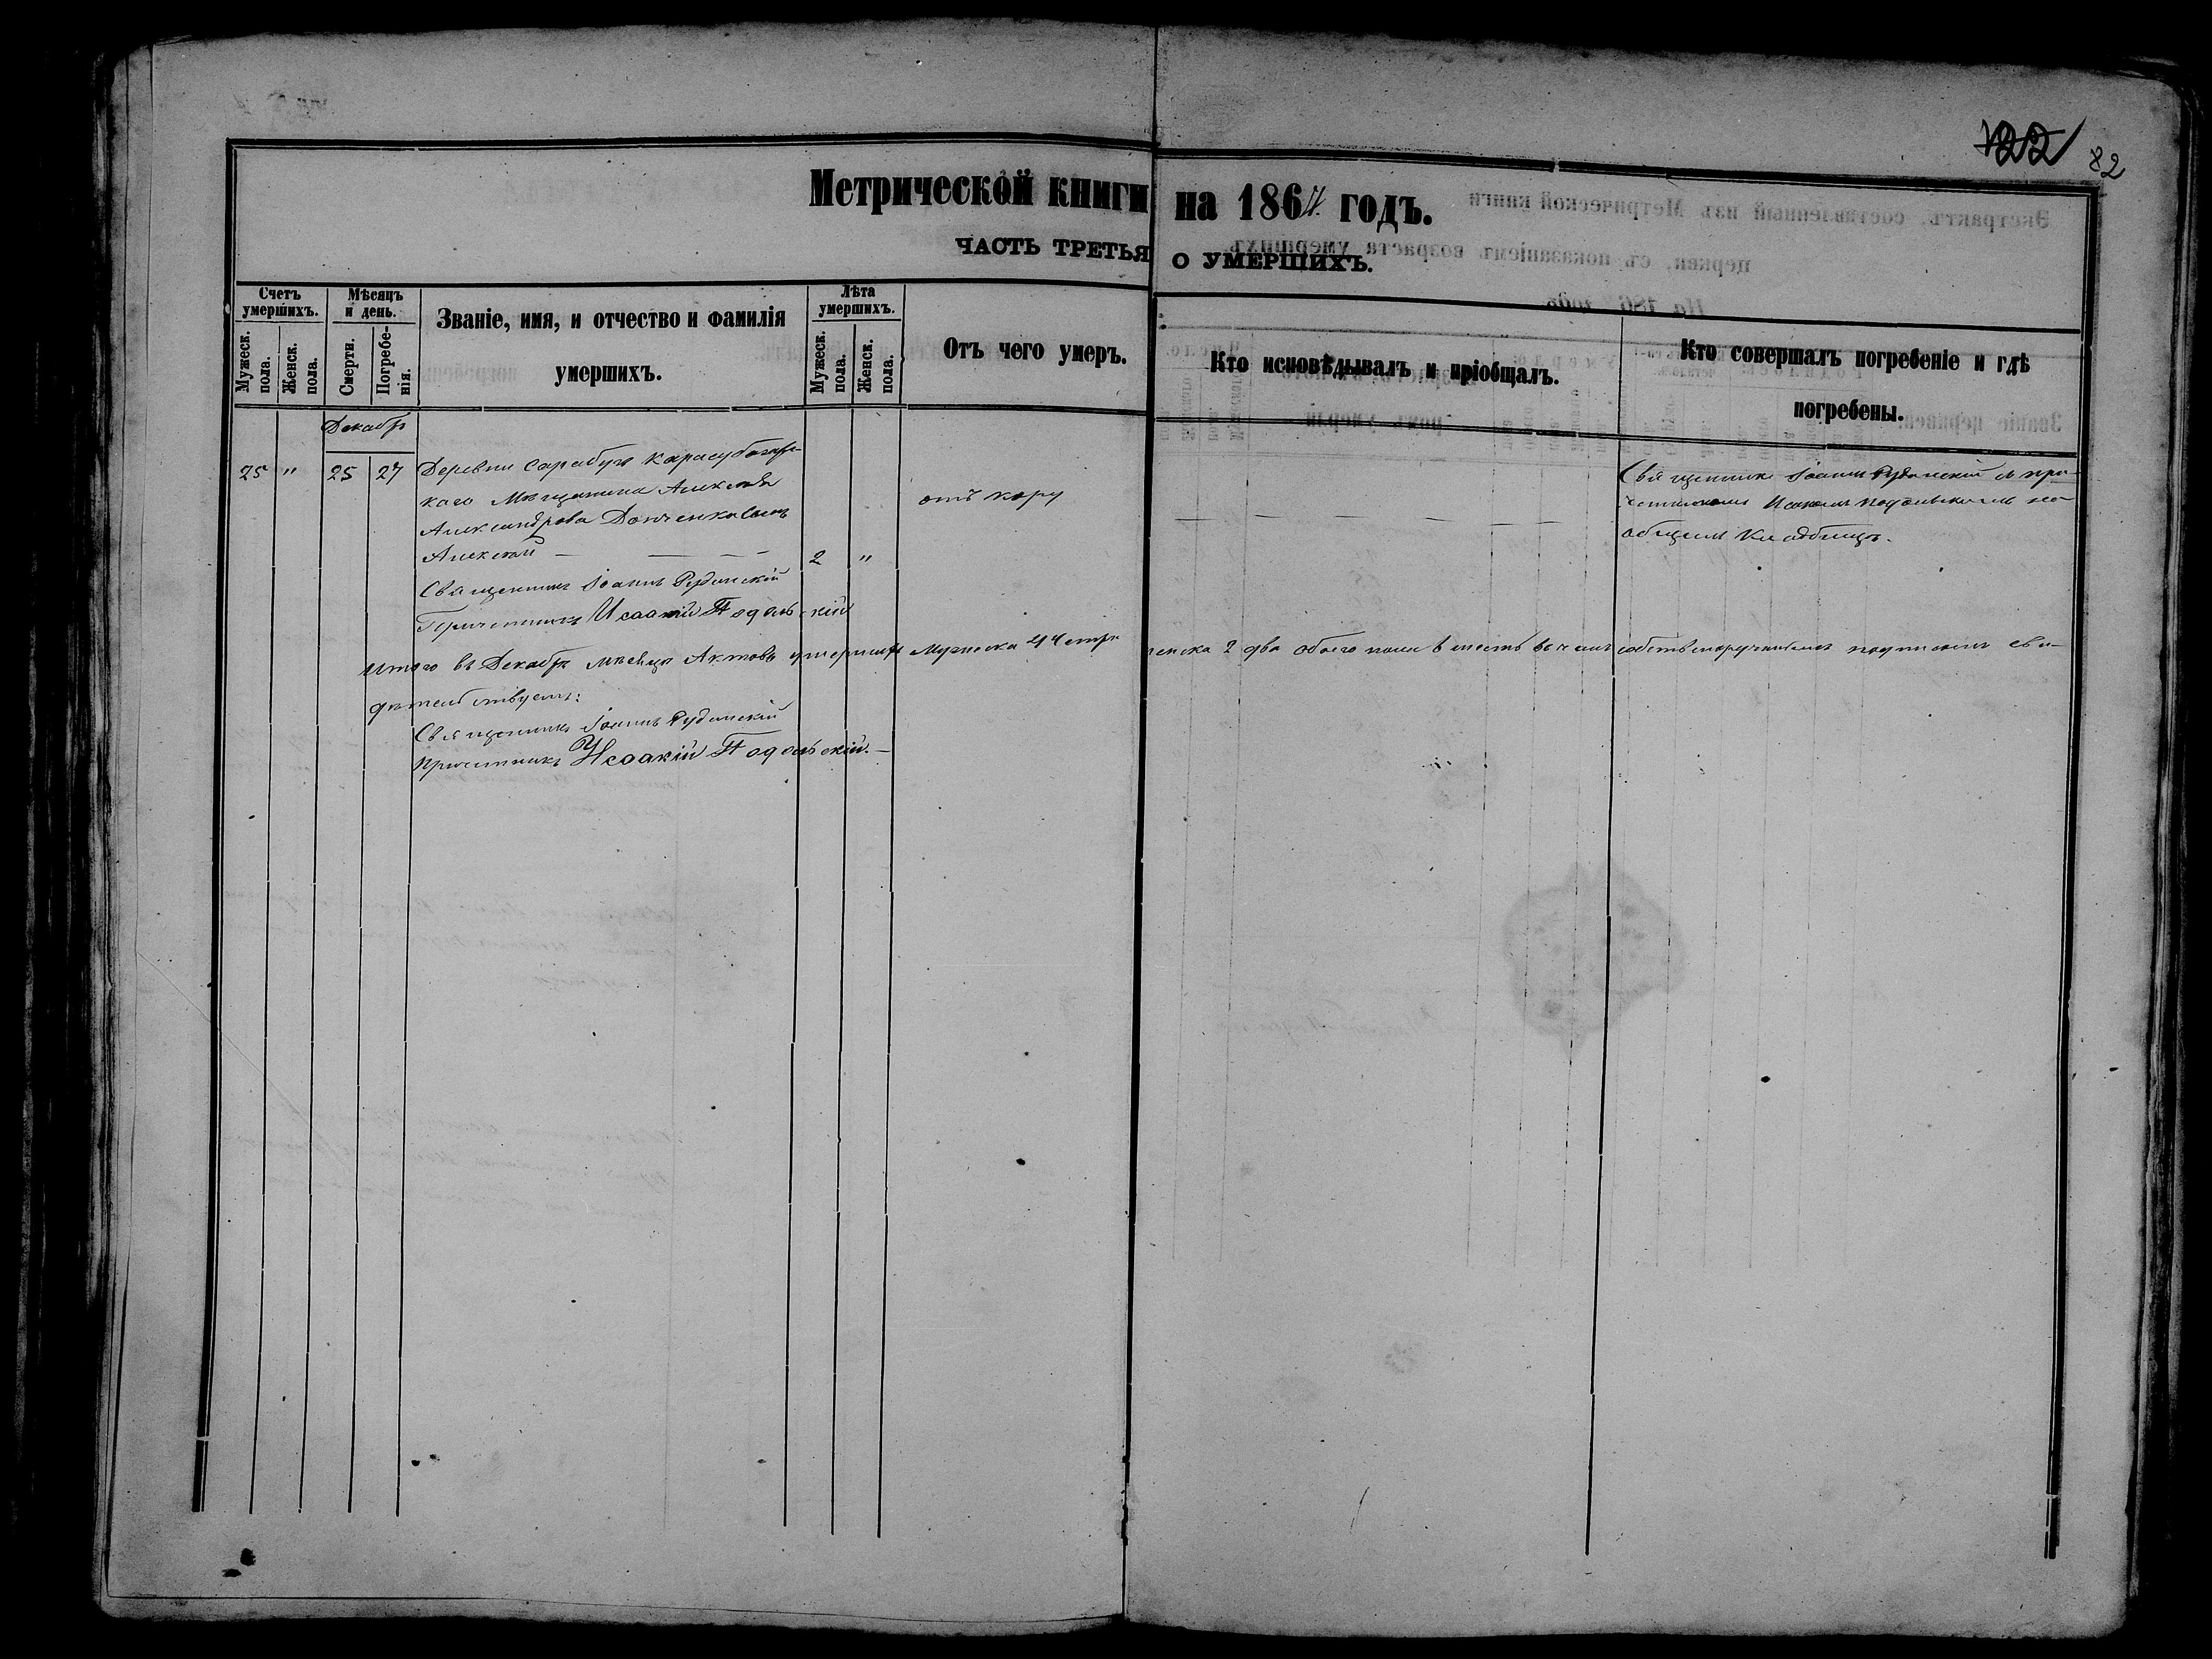 122 82
Метрической книги на 1864 годъ.
ЧАСТЬ ТРЕТЬЯ О УМЕРШИХЪ.
Счетъ умершихъ.
Мужеск. пола.
Женск. пола.
Мѣсяцъ и день.
Смерти.
Погребенія.
Званіе, имя, и отчество и фамилія умершихъ.
Лѣта умершихъ.
Мужеск. пола.
Женск. пола.
Отъ чего умеръ.
Кто исповѣдывалъ и пріобщалъ.
Кто совершалъ погребеніе и гдѣ погребены.
Декабрь
25 " 25 27 Деревни Сарабузъ Карасубазарс-
каго Мѣщанина Алексѣя
Александрова Донченка сынъ
Алексѣй — — — 2 "
отъ кору
— — — — —
Священникъ Іоаннъ Рудинскій съ при-
четникомъ Исаакіемъ Подольскимъ на
общемъ Кладбищѣ.
Священникъ Іоаннъ Рудинскій
Причетникъ Исаакій Подольскій
Итого въ Декабрѣ мѣсяцѣ Актовъ умершихъ Мужеска 4 четыре женска 2 два обоего пола 6 шесть въ чемъ собственоручнымъ подписомъ сви-
дѣтельствуемъ:
Священникъ Іоаннъ Рудинскій
Причетникъ Исаакій Подольскій.—